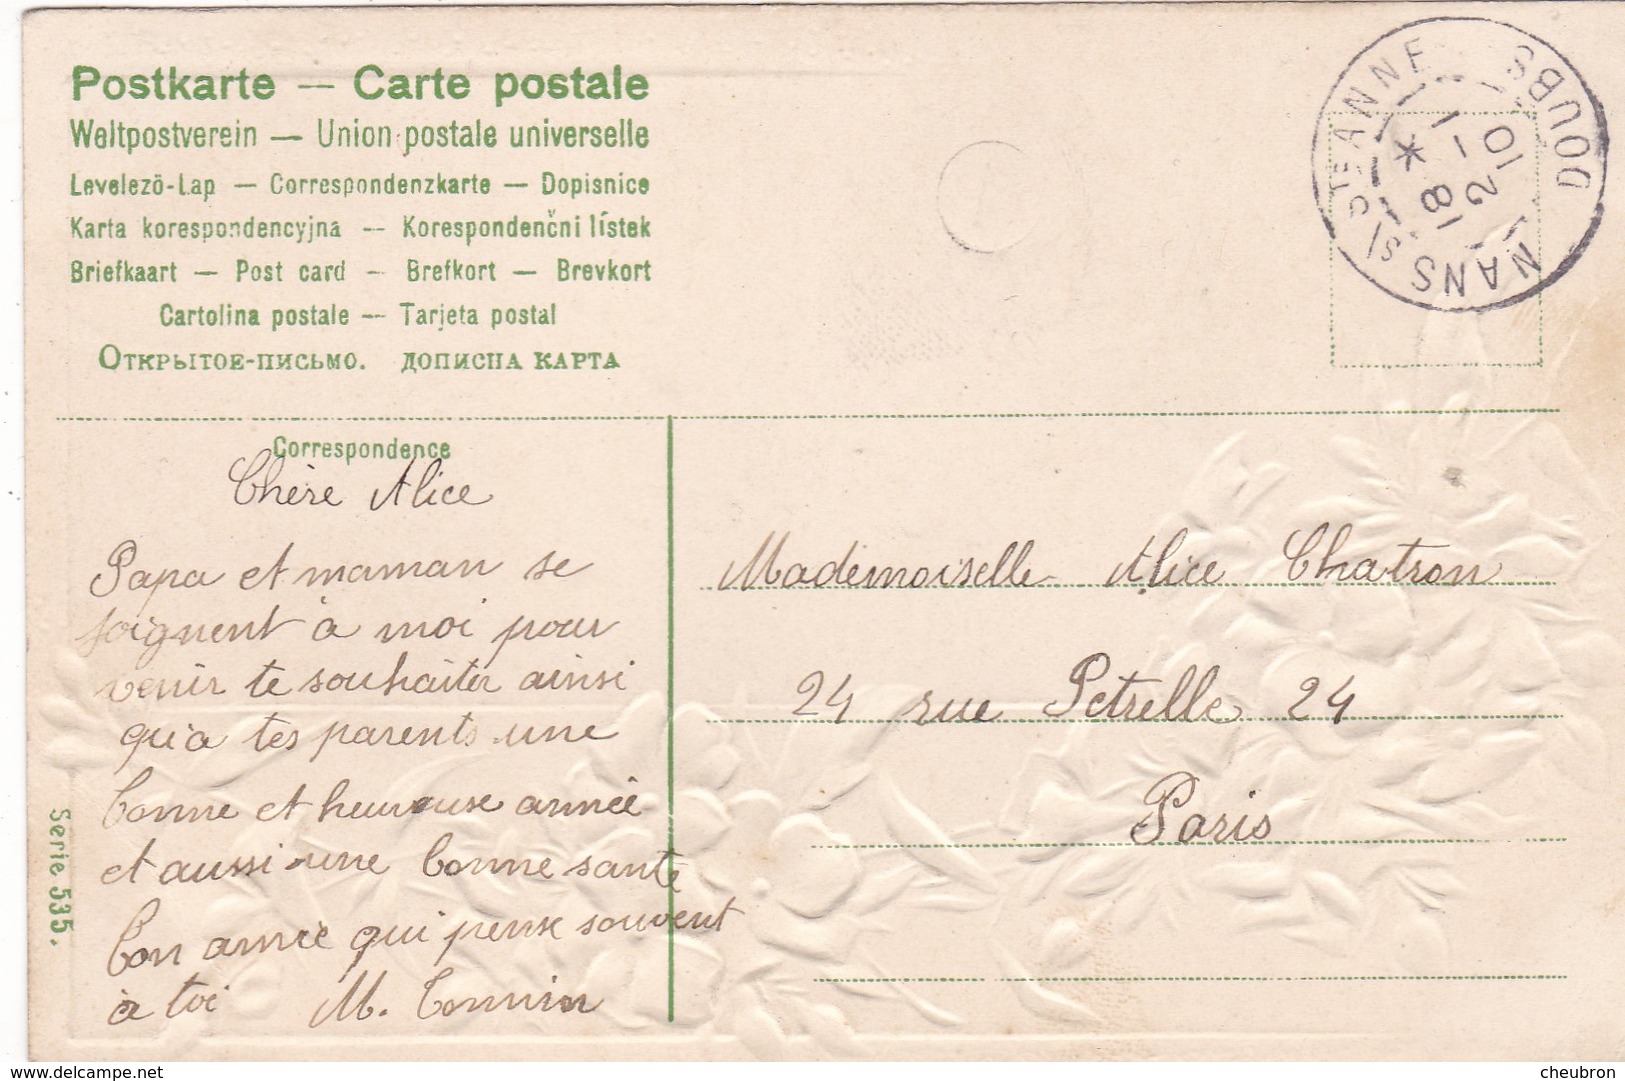 Postkarte — Carte postale
Weltpostverein — Union postale universelle
Levelezö-Lap — Correspondenzkarte — Dopisnice
Karta korespondencyjna — Korespondenčni lístek
Briefkaart — Post card — Brefkort — Brevkort
Cartolina postale — Tarjeta postal
Открытое-письмо. дописна карта
NANS S/S STE ANNE
DOUBS
1 - 1
8
2 10
Correspondence
Chère Alice
Papa et maman se
joignent à moi pour
venir te souhaiter ainsi
qu'a tes parents une
bonne et heureuse année
et aussi une bonne santé
Ton amie qui pense souvent
à toi M. Tonnin
Mademoiselle Alice Chatron
24 rue Petrelle 24
Paris
Serie 535.
delcampe.net
cheubron